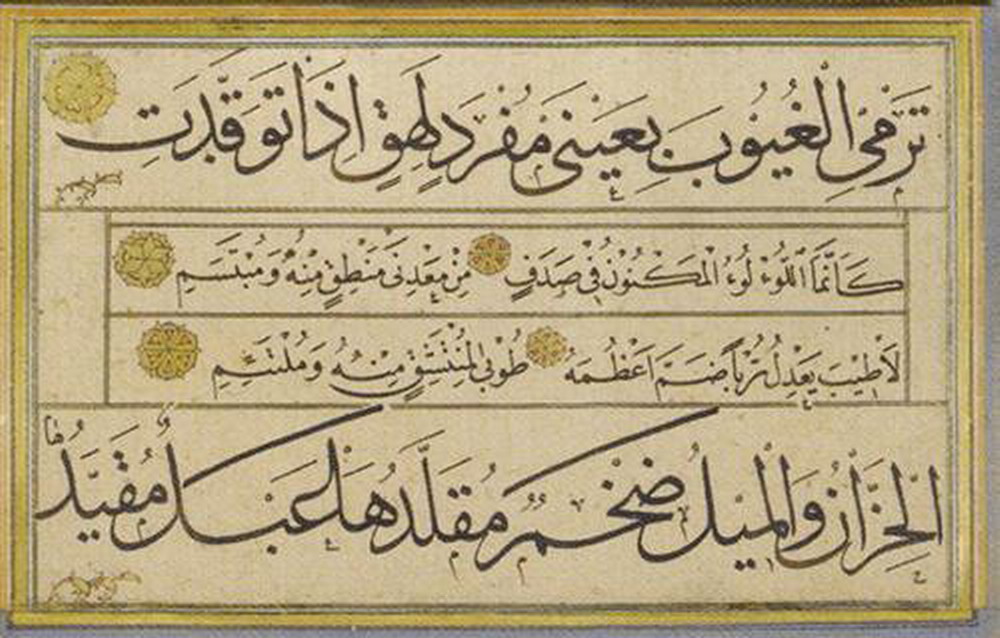 تَرْمِى الْغُيُوبَ بِعَيْنَىْ مُفْرَدٍ لَهِقٍ اِذَا تَوَقَّدَتِ
كَاَنَّمَا اللُّوءْ لُوءُ الْمَكْنُوْنُ فِى صَدَفٍ مِنْ مَعْدِنَىْ مَنْطِقٍ مِنْهُ وَمُبْتَسَمِ
لَاطِيْبَ يَعْدِلُ تُرْبًا ضَمَّ اَعْظُمَهُ طُوْبٰى لِمُنْتَشِقٍ مِنْهُ وَمُلْتَثِمِ
الْحِزَّانُ وَالْمِيْلُ ضَخْمٌ مُقَلَّدُهَا عَبْلٌ مُقَيَّدُهَا